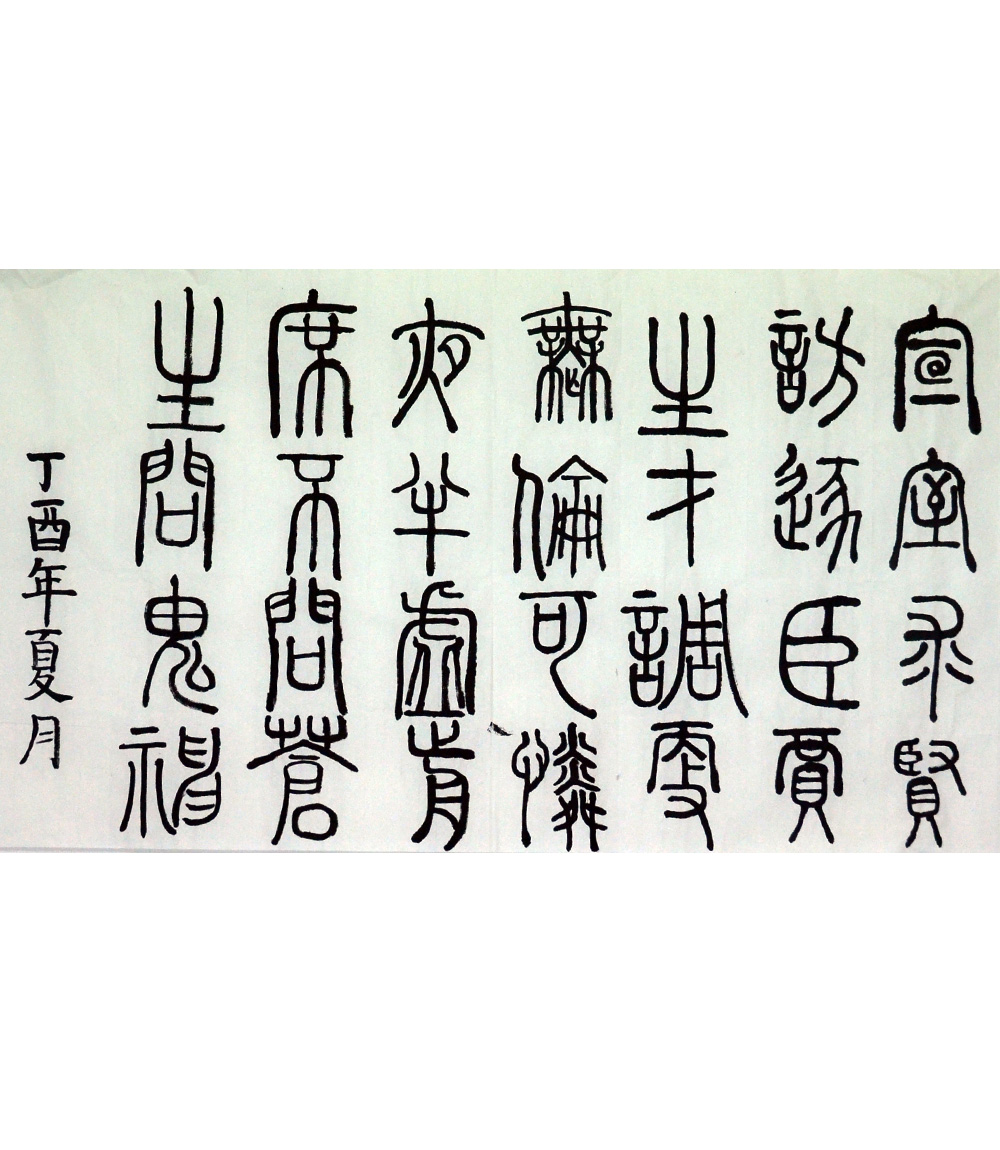 宣室求賢
訪逐臣賈
生才調更
無倫可憐
夜半虛前
席不問蒼
生問鬼神
丁酉年夏月